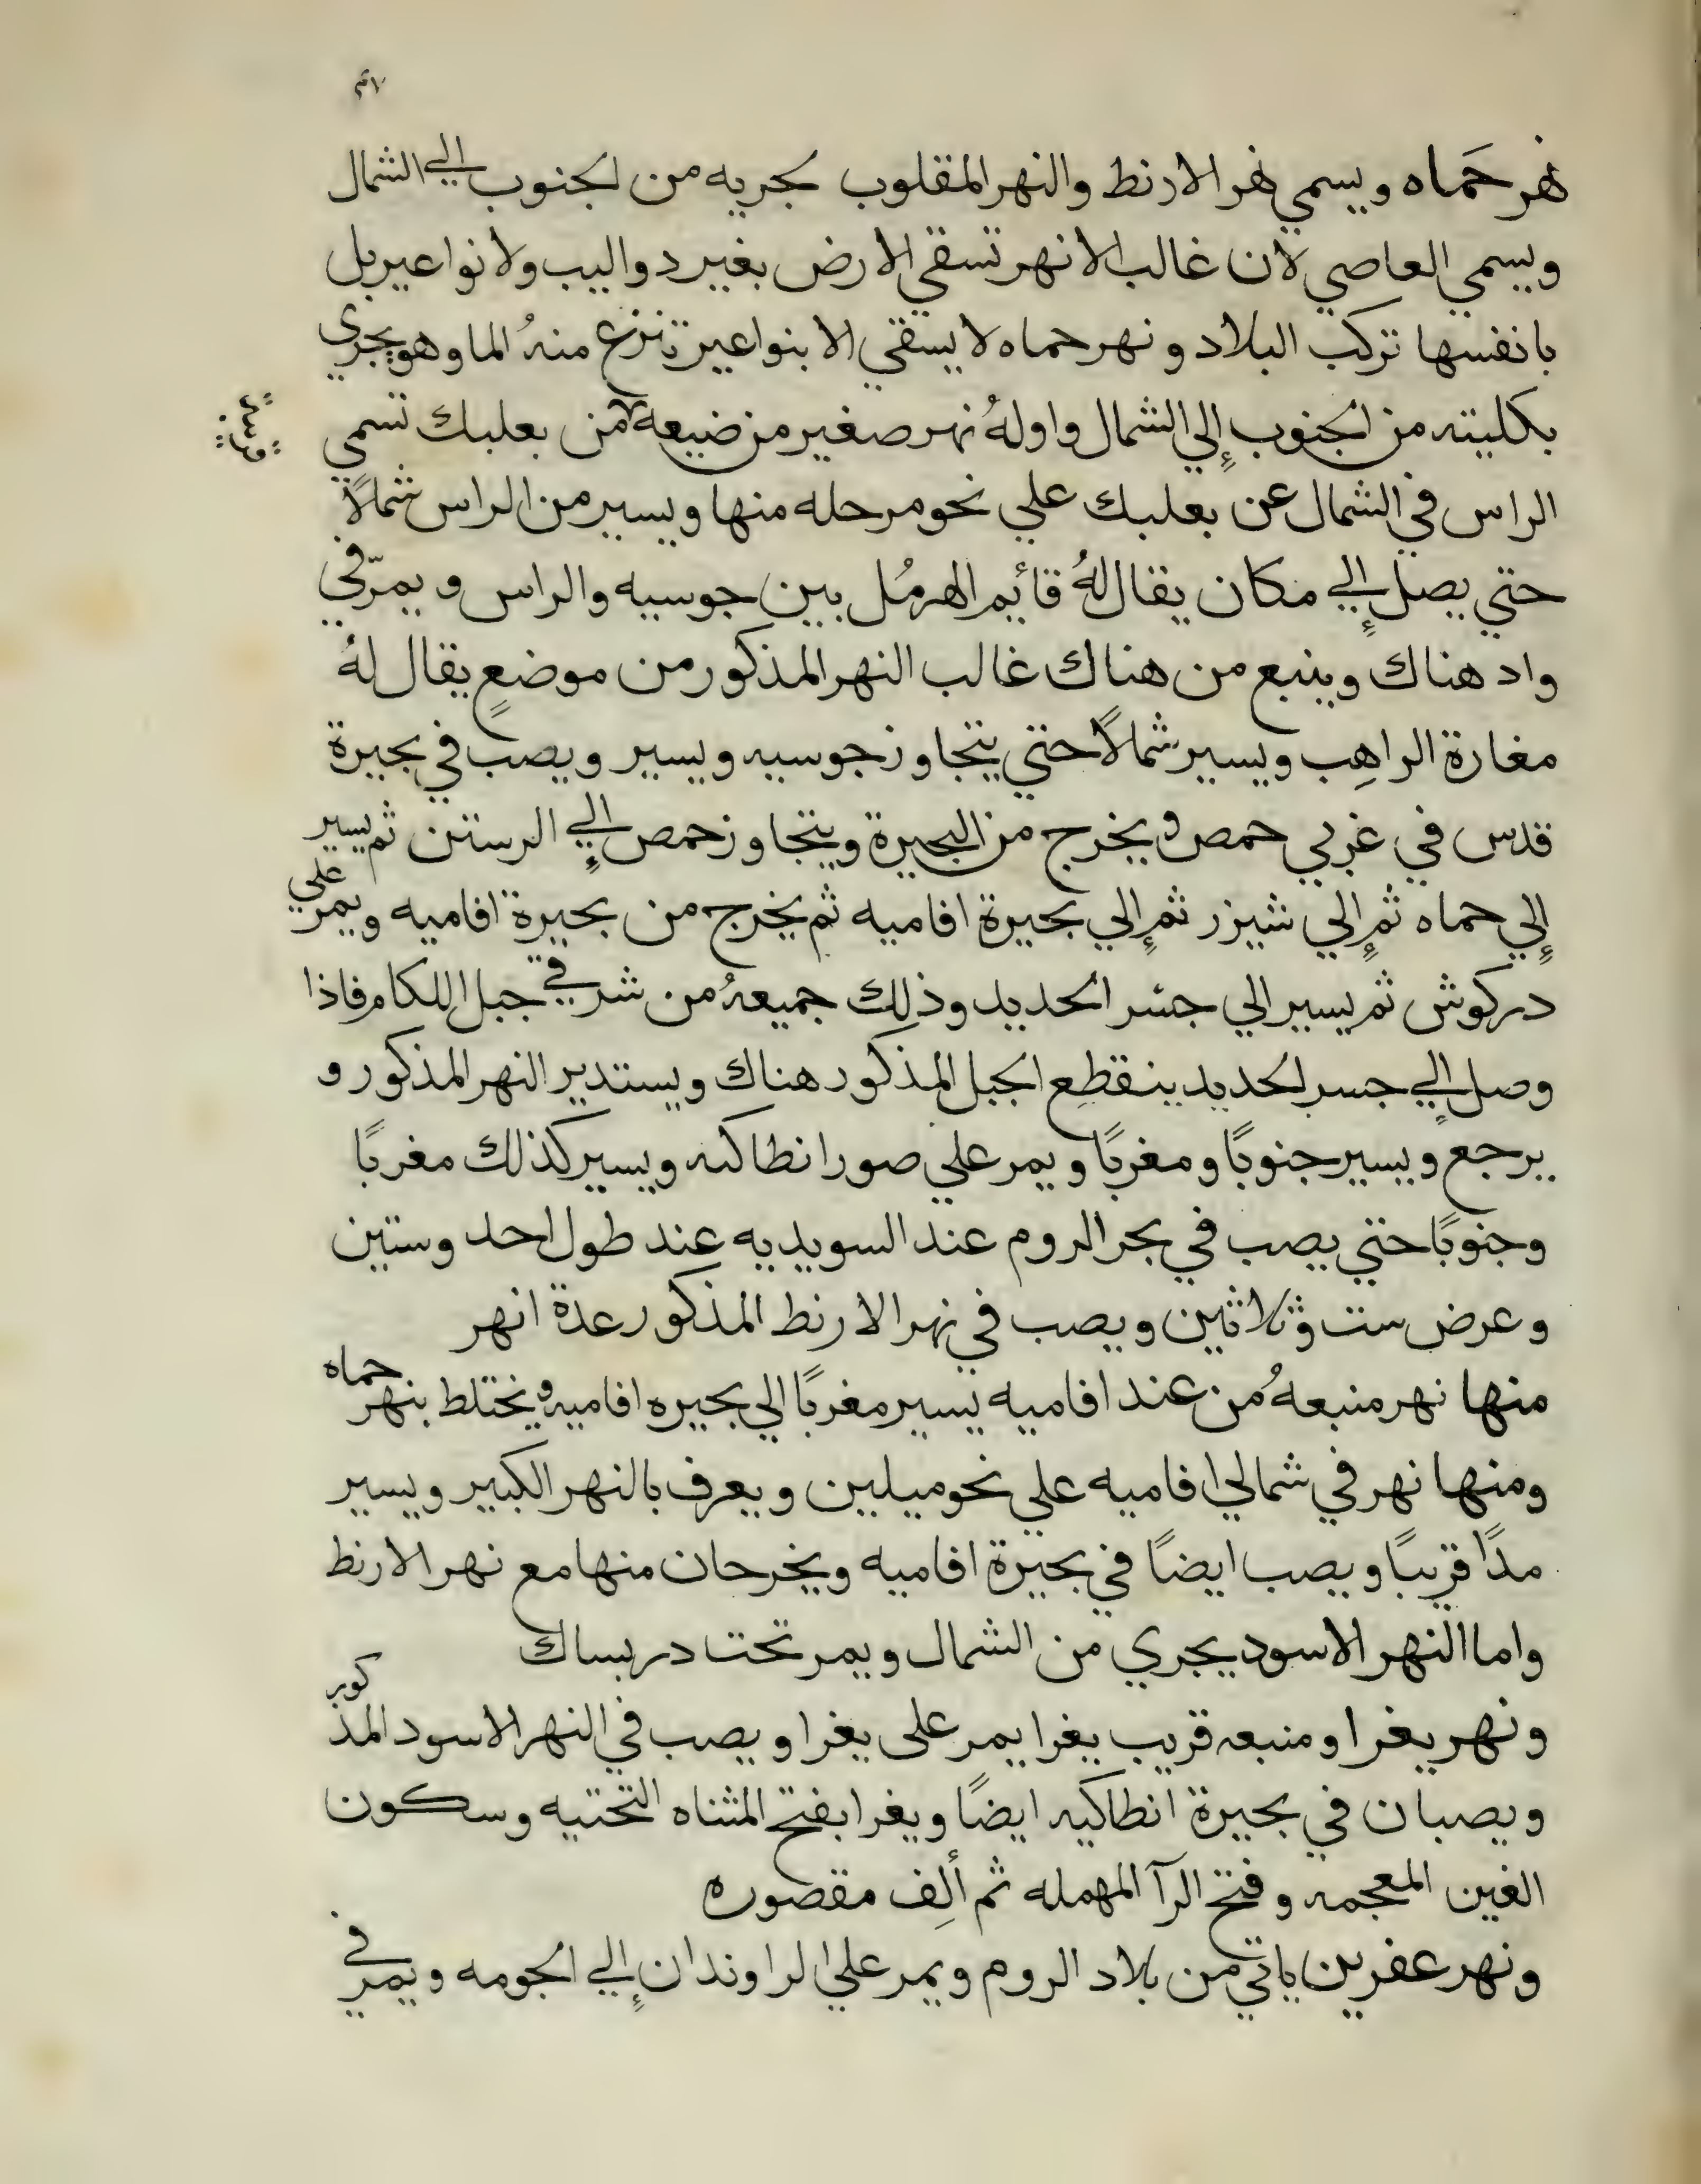 نهر حَماه ويسمي نهر الارنط والنهر المقلوب لجريه من الجنوب الي الشمال
ويسمي العاصي لان غالب الانهر تسقي الارض بغير دواليب ولا نواعير بل
بانفسها تركب البلاد ونهر حماه لا يسقي الا بنواعير تنزع منهُ الما وهو يجري
بكليته من الجنوب إلي الشمال واولهُ نهر صغير من ضيعة من بعلبك تسمي
الراس في الشمال عن بعلبك علي نحو مرحله منها ويسير من الراس شمالاً
حتي يصل إلي مكان يقال لهُ قائيم الهرمُل بين جوسيه والراس و يمرّ في
واد هناك وينبع من هناك غالب النهر المذكور من موضعٍ يقال لهُ
مغارة الراهِب ويسير شمالاً حتي يتجاوز جوسيه ويسير ويصب في بحيرة
قدس في غربي حمص ويخرج من البحيرة ويتجاوز حمص إلي الرستن ثم يسير
إلي حماه ثم إلي شيزر ثم إلي بحيرة افاميه ثم يخرج من بحيرة افاميه ويمر علي
دركوش ثم يسير الي جسر الحديد وذلِك جميعهُ من شرقي جبل اللكام فاذا
وصل إلي جسر الحديد ينقطِع الجبل المذكور هناك ويستدير النهر المذكور و
يرجع ويسير جنوبًا ومغربًا ويمر علي صور انطاكيه ويسير كذلك مغربًا
وجنوبًا حتي يصب في بحر الروم عند السويديه عِند طول احد وستين
وعرض ست وثلاثين ويصب في نهر الارنط المذكور عدة انهر
منها نهر منبعهُ من عند افاميه يسير مغربًا الي بحيره افاميه ويختلط بنهر حماه
ومنها نهر في شمالي افاميه علي نحو ميلين ويعرف بالنهر الكبير ويسير
مدًا قريبًا ويصب ايضًا في بحيرة افاميه ويخرجان منها مع نهر الارنط
واما النهر الاسود يجري من الشمال ويمر تحت دربساك
ونهر يغرا ومنبعه قريب يغرا يمر على يغرا ويصب في النهر الاسود المذكور
ويصبان في بحيرة انطاكيه ايضًا ويغرا بفتح المثناه التحتيه وسكون
الغين المعجمه وفتح الرآ المهمله ثم ألِف مقصوره
ونهر عفرين ياتي من بلاد الروم ويمر علي الراوندان إلي الجومه ويمر في